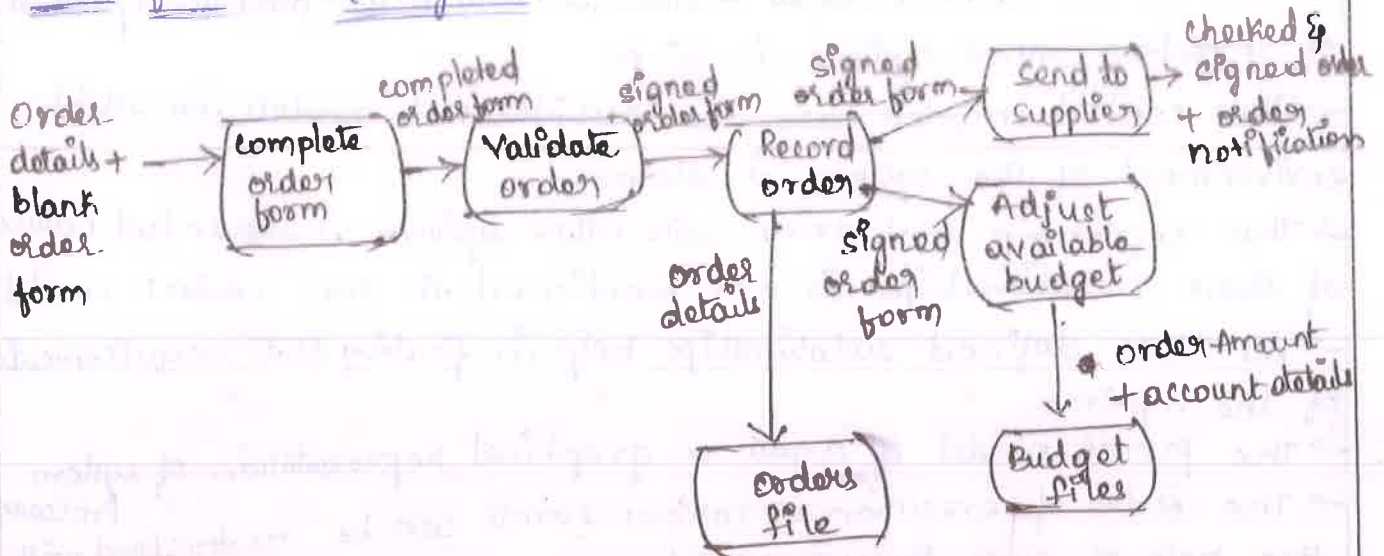 Order
details +
blank
order
form
complete
order
form
completed
order form
Validate
order
signed
order form
Record
order
signed
order form
send to
supplier
checked &
signed order
+ order
notification
signed
order
form
Adjust
available
budget
order
details
order Amount
+ account details
orders
file
Budget
files